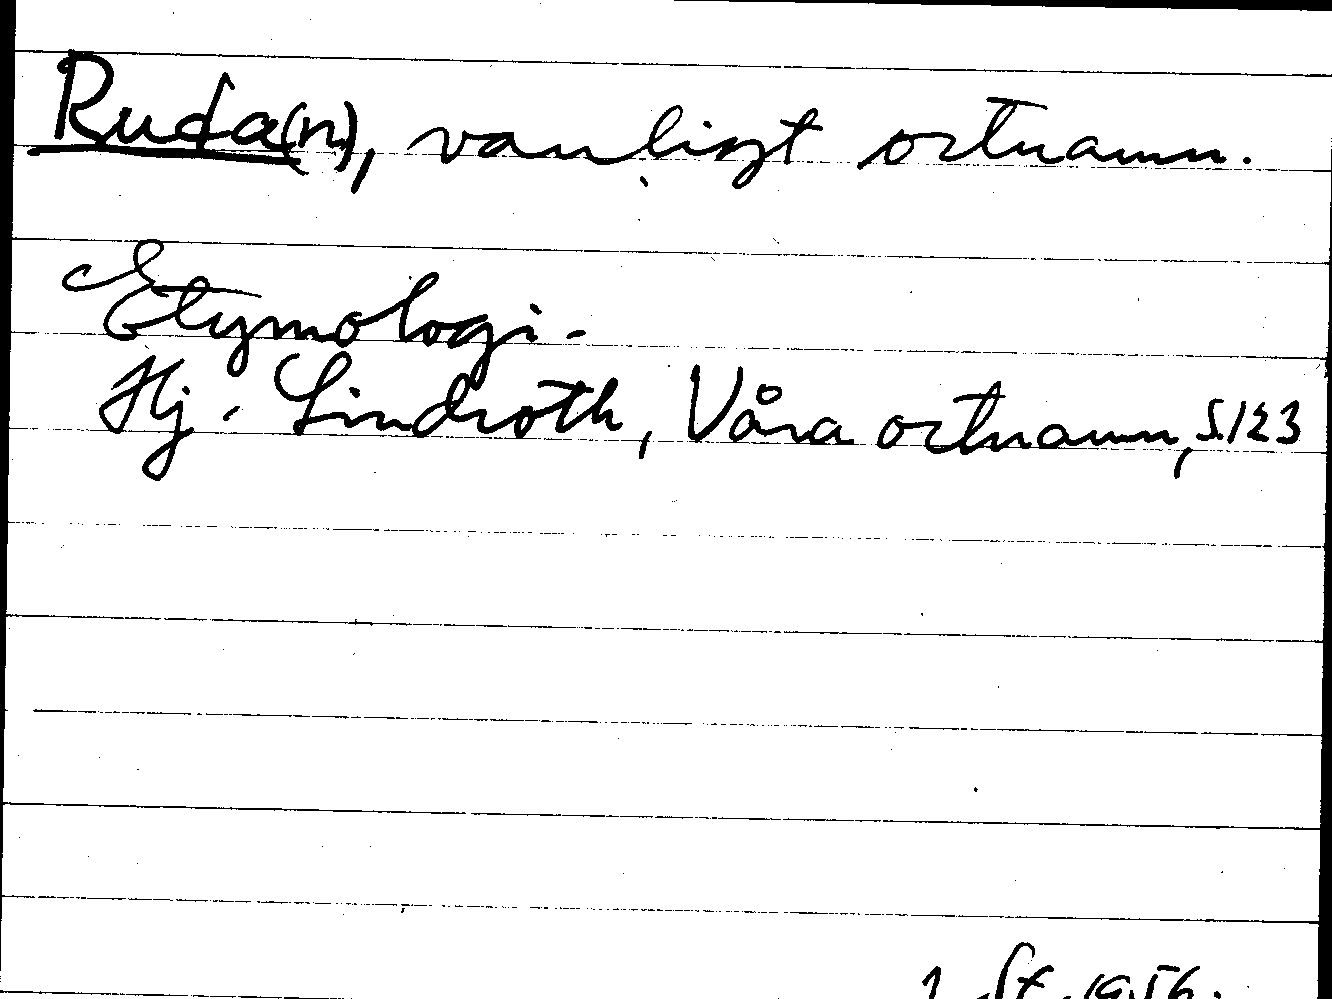 Ruda(n), vanligt ortnamn.
Etymologi.
Hj. Lindroth, Våra ortnamn, S. 123
1956.